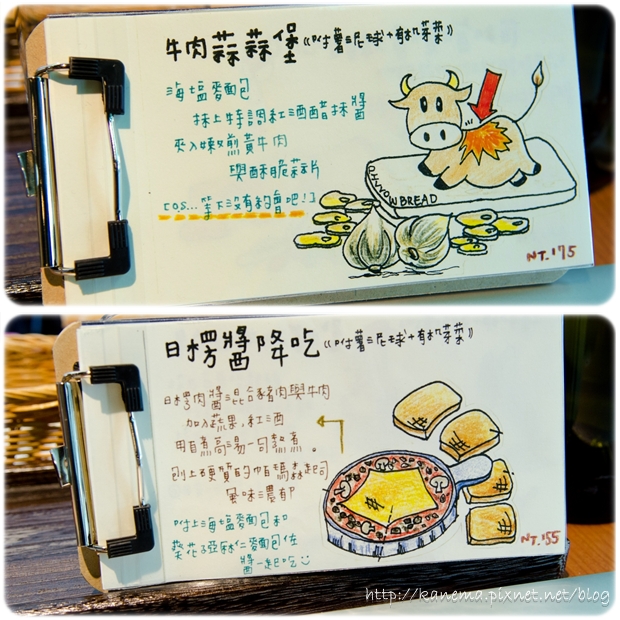 牛肉蒜蒜堡《附薯泥球+有机芽菜》
海塩麥面包
抹上特調紅酒醋抹醬
夾入嫩煎黃牛肉
與酥脆蒜片
[OS...等下沒有約會吧!]
PILLOW BREAD
NT.175
日楞醬降吃《附薯泥球+有机芽菜》
日楞肉醬混合豬肉與牛肉
加入蔬果,紅酒
用自煮高湯一同熬煮。
刨上硬質的帕瑪森起司
風味濃郁
附上海塩麥面包和
葵花子亞麻仁麥面包佐
醬一起吃
NT.155
http://kanema.pixnet.net/blog